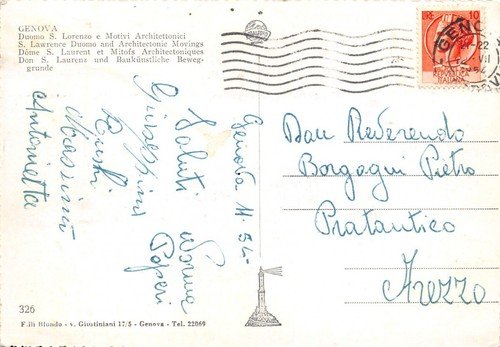 GENOVA
Duomo S. Lorenzo e Motivi Architettonici
S. Lawrence Duomo and Architectonic Movings
Dôme S. Laurent et Mitofs Architectoniques
Don S. Laurenz und Baukünstliche Beweg-
grunde
LIRE 10
GENOVA
22
VII
54
Genova 11.54-
Saluti Norma
Giuseppina Paperi
Massimo
Antonietta
Don Reverendo
Borgogni Pietro
Pratantico
Arezzo
326
F.lli Blondo - v. Giustiniani 17/5 - Genova - Tel. 22869